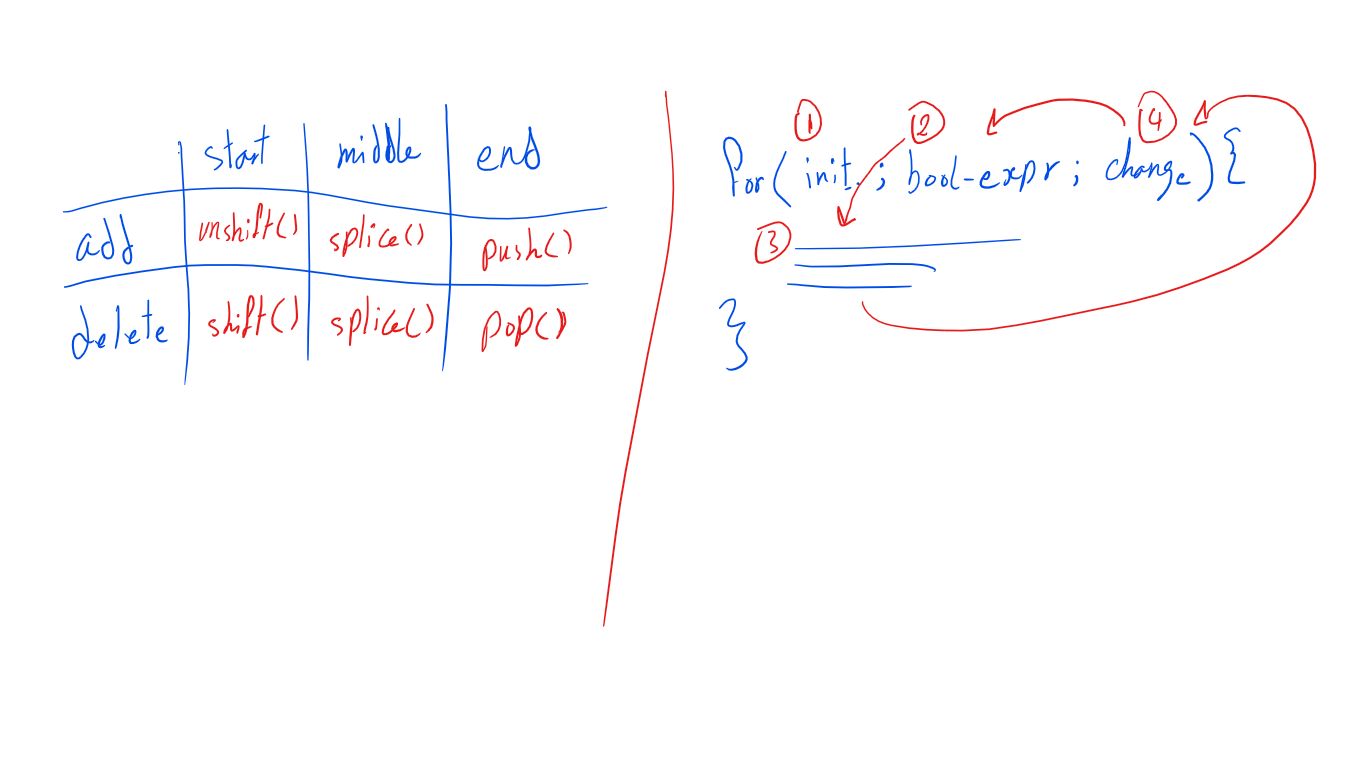 start middle end
add unshift() splice() push()
delete shift() splice() pop()
1 2 4
for( init ; bool-expr ; change ) {
3
}